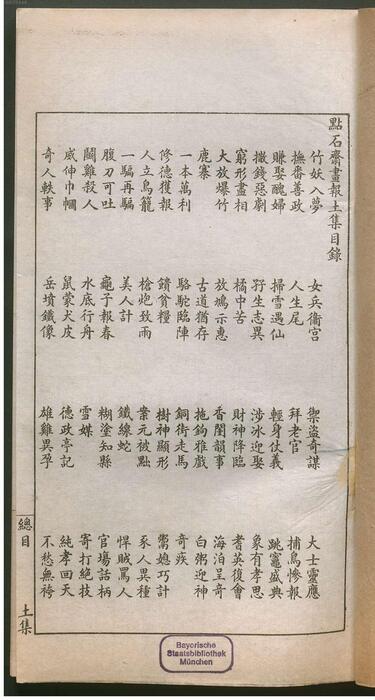 點石齋畫報土集目錄
竹妖入夢 女兵衞宫 禦盜奇謀 大士靈應
撫番善政 人生尾 拜老官 捕鳥慘報
賺娶醜婦 掃雪遇仙 輕身仗義 跳竈盛典
撒錢惡劇 孖生志異 涉冰迎娶 象有孝思
窮形盡相 橘中苦 財神降臨 耆英復會
大放爆竹 放鳩示惠 香閨韻事 海泊呈奇
鹿寨 古道猶存 拖鉤雅戲 白粥迎神
一本萬利 駱駝臨陣 銅街走馬 奇疾
修德獲報 饋貧糧 樹神顯形 鬻媳巧計
人立鳥籠 槍炮致雨 業元被㸃 豕人異種
一騙再騙 美人計 鐵線蛇 悍賊罵人
腹刀可吐 龜子報春 糊塗知縣 官塲話柄
鬬雞殺人 水底行舟 雪媒 寄打絶技
威伸巾幗 鼠蒙犬皮 德政亭記 純孝回天
奇人軼事 岳墳鐵像 雄雞異孕 不愁無袴
總目 土集
Bayerische
Staatsbibliothek
München